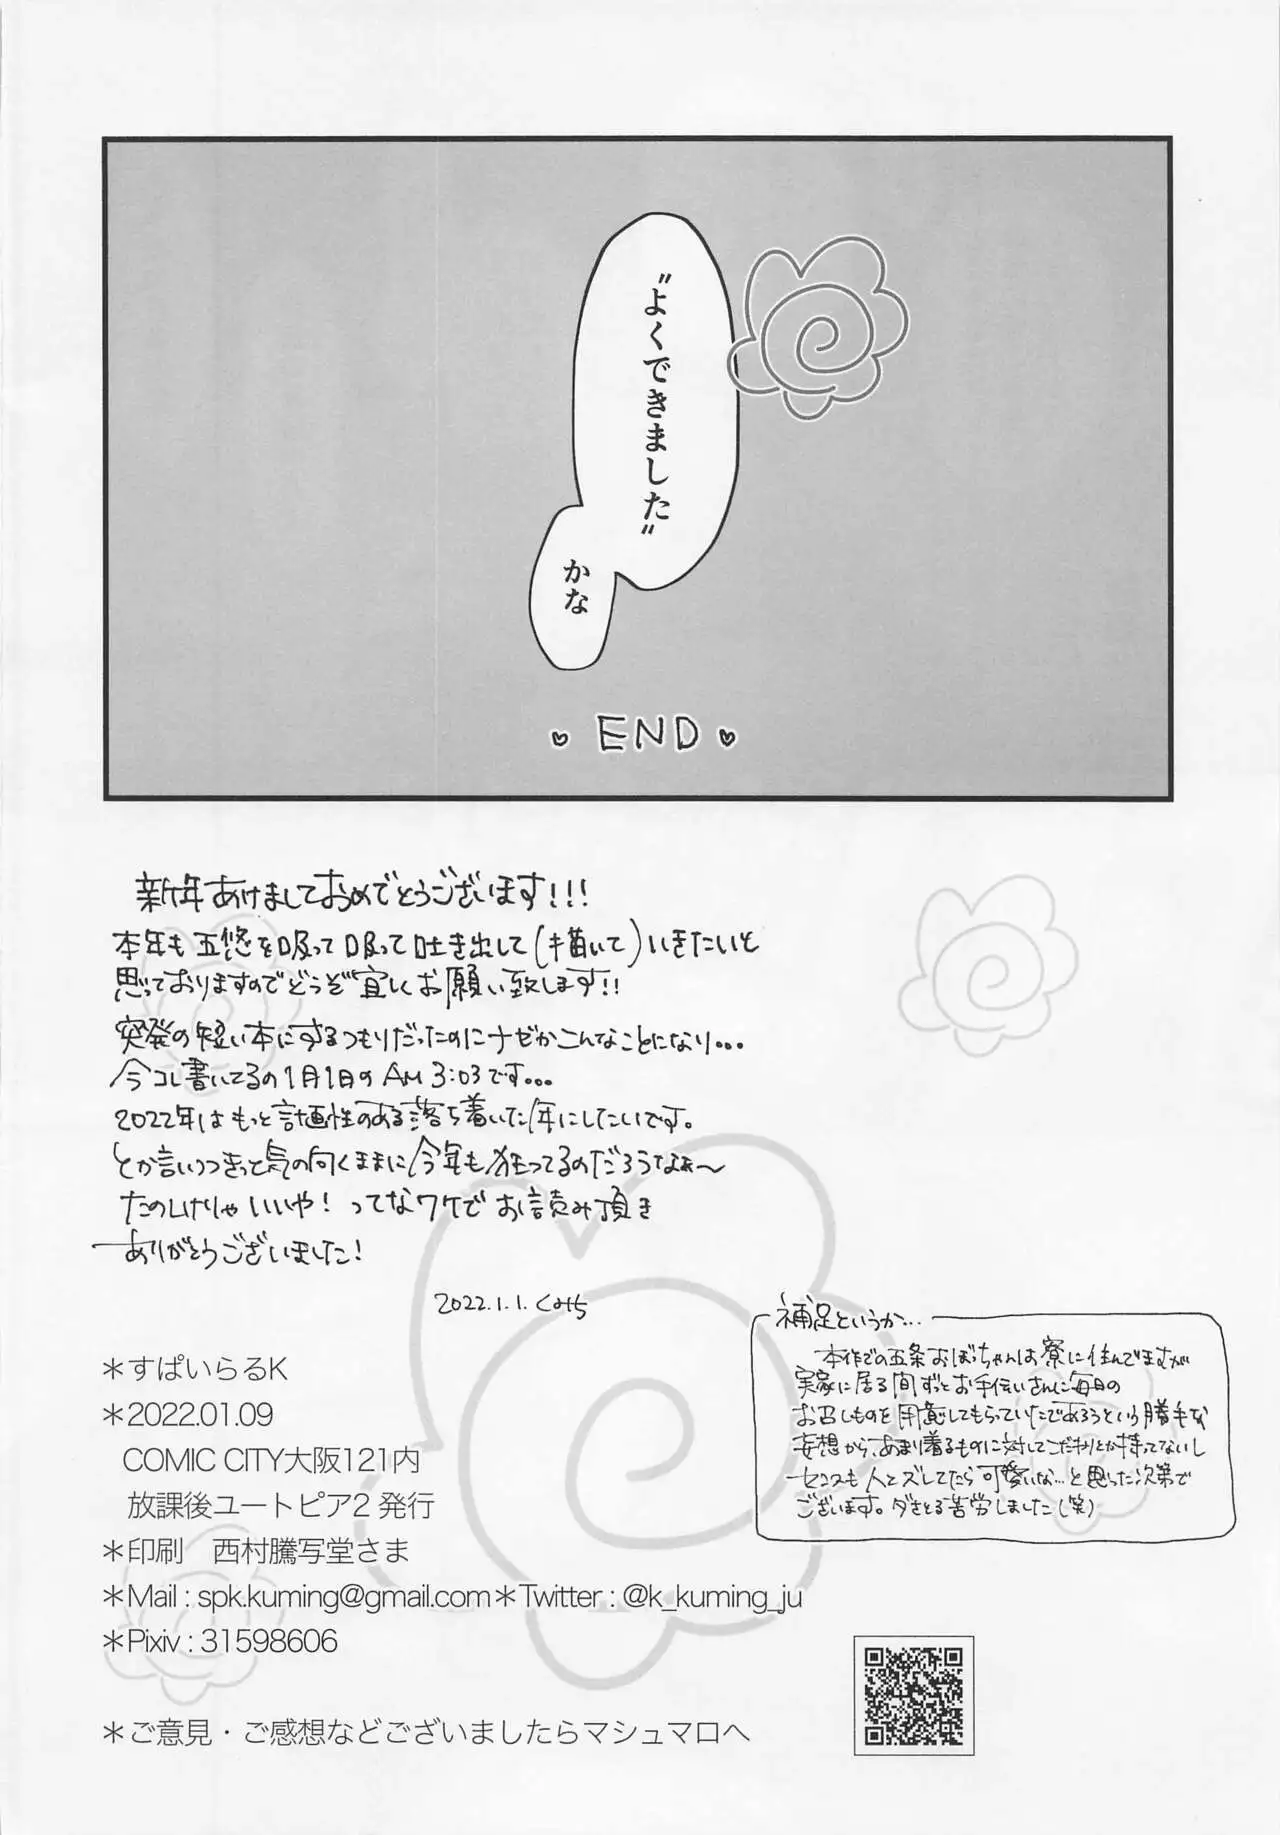 〝よくできました〟
かな
END
新年あけましておめでとうございます!!!
本年も五悠を吸って吸って吐き出して(描いて)いきたいと
思っておりますのでどうぞ宜しくお願い致します!!
突発の短い本にするつもりだったのにナゼかこんなことになり...
今コレ書いてるの1月1日のAM 3:03です...
2022年はもっと計画性のある落ち着いた年にしたいです。
とか言いつつきっと気の向くままに今年も狂ってるのだろうなぁ〜
たのしけりゃいいや! ってなワケでお読み頂き
ありがとうございました!
2022.1.1.くみち
補足というか...
本作での五条おぼっちゃんは寮に住んでますが
実家に居る間ずっとお手伝いさんに毎日の
お召しものを用意してもらっていたであろうという勝手な
妄想から、あまり着るものに対してこだわりとか持ってないし
センスも人とズレてたら可愛いな...と思った次第で
ございます。ダサとる苦労しました(笑)
*すぱいらるK
*2022.01.09
COMIC CITY大阪121内
放課後ユートピア2 発行
*印刷 西村謄写堂さま
*Mail : spk.kuming@gmail.com*Twitter : @k_kuming_ju
*Pixiv : 31598606
*ご意見・ご感想などございましたらマシュマロへ